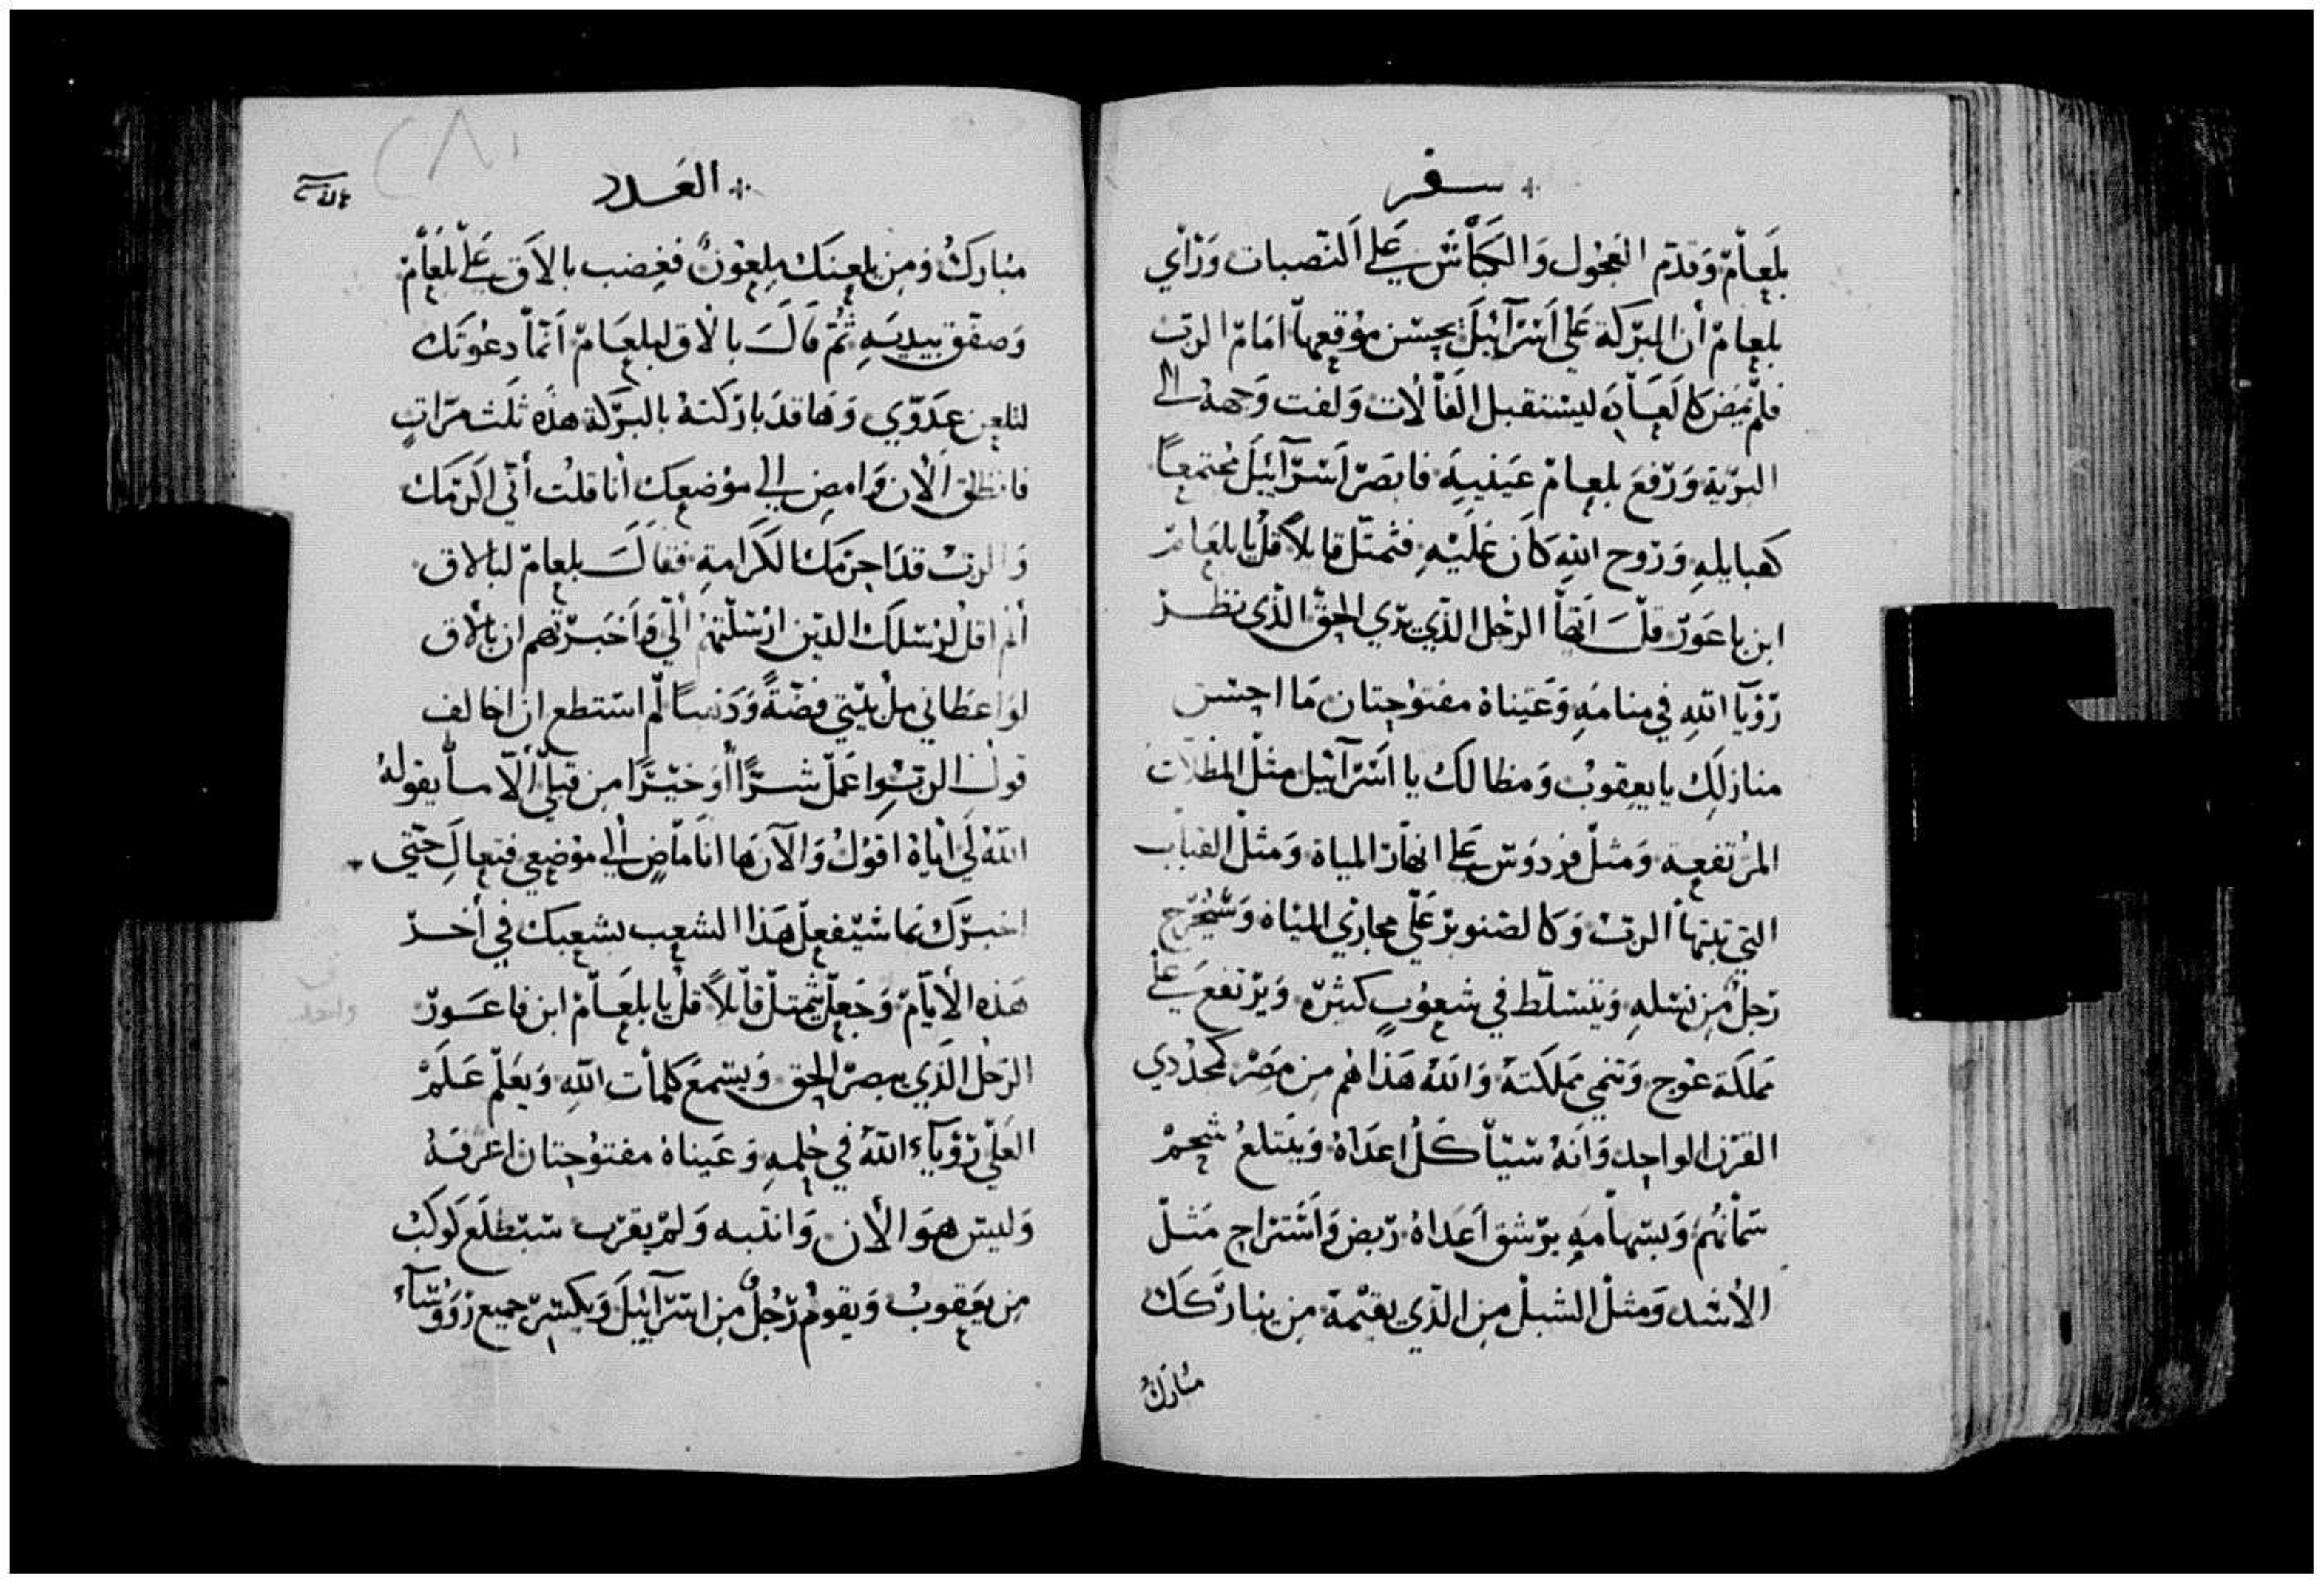 سفر
بلعام وقدم العجول والكباش على النصبات وراي
بلعام أن البركة على اسرآئيل بحسن موقعها امام الرب
فلم يمض كالعادة ليستقبل الفالات ولفت وجهه الى
البرية ورفع بلعام عينيه فابصر اسرآئيل مجتمعاً
كهبايله وروح الله كان عليه فتمثل قايلاً قل يا بلعام
ابن باعور قل أيها الرجل الذي يري الحق الذى نظر
رؤيآ الله في منامه وعيناه مفتوحتان ما احسن
منازلك يا يعقوب ومظالك يا اسرآئيل مثل المظلات
المرتفعة ومثل فردوس على انهار المياه ومثل القباب
التي ثبتها الرب وكالصنوبر على مجاري المياه وسيخرج
رجل من نسله ويتسلط في شعوب كثره ويرتفع على
مملكة عوج وتنمي مملكته والله هداهم من مصر كمجد ذي
القرن الواحد وانه سيأكل اعداه ويبتلع شحم
سمانهم وبسهامه يرشق اعداه ربض واستراح مثل
الاسد ومثل الشبل من الذي يقيمه من يباركك
مبارك
العدد
مبارك ومن يلعنك ملعون فغضب بالاق على بلعام
وصفق بيديه ثم قال بالاق لبلعام انما دعوتك
لتلعن عدوي وها قد باركته بالبركة هذه ثلث مرات
فانطلق الان وامض الى موضعك أنا قلت أني اكرمك
والرب قد احرمك الكرامة فقال بلعام لبالاق
ألم اقل لرسلك الدين ارسلتهم الي واخبرتهم ان بالاق
لو اعطاني مل بيتي فضةً وذهبا لم استطع ان اخالف
قول الرب واعمل شراً أو خيراً من قبلي ألا ما يقوله
الله لي اياه اقول والآن ها انا ماض الى موضعي فتعال حتى
اخبرك بما سيفعل هذا الشعب بشعبك في أخر
هذه الأيام وجعل يتمثل قايلاً قل يا بلعام ابن فاعور
الرجل الذي يبصر الحق ويسمع كلمات الله ويعلم علم
العلي رؤياء الله في حلمه وعيناه مفتوحتان اعرفه
وليس هو الأن وانتبه ولم يقرب سيطلع كوكب
من يعقوب ويقوم رجل من اسرآئيل ويكسر جميع رؤوسآء